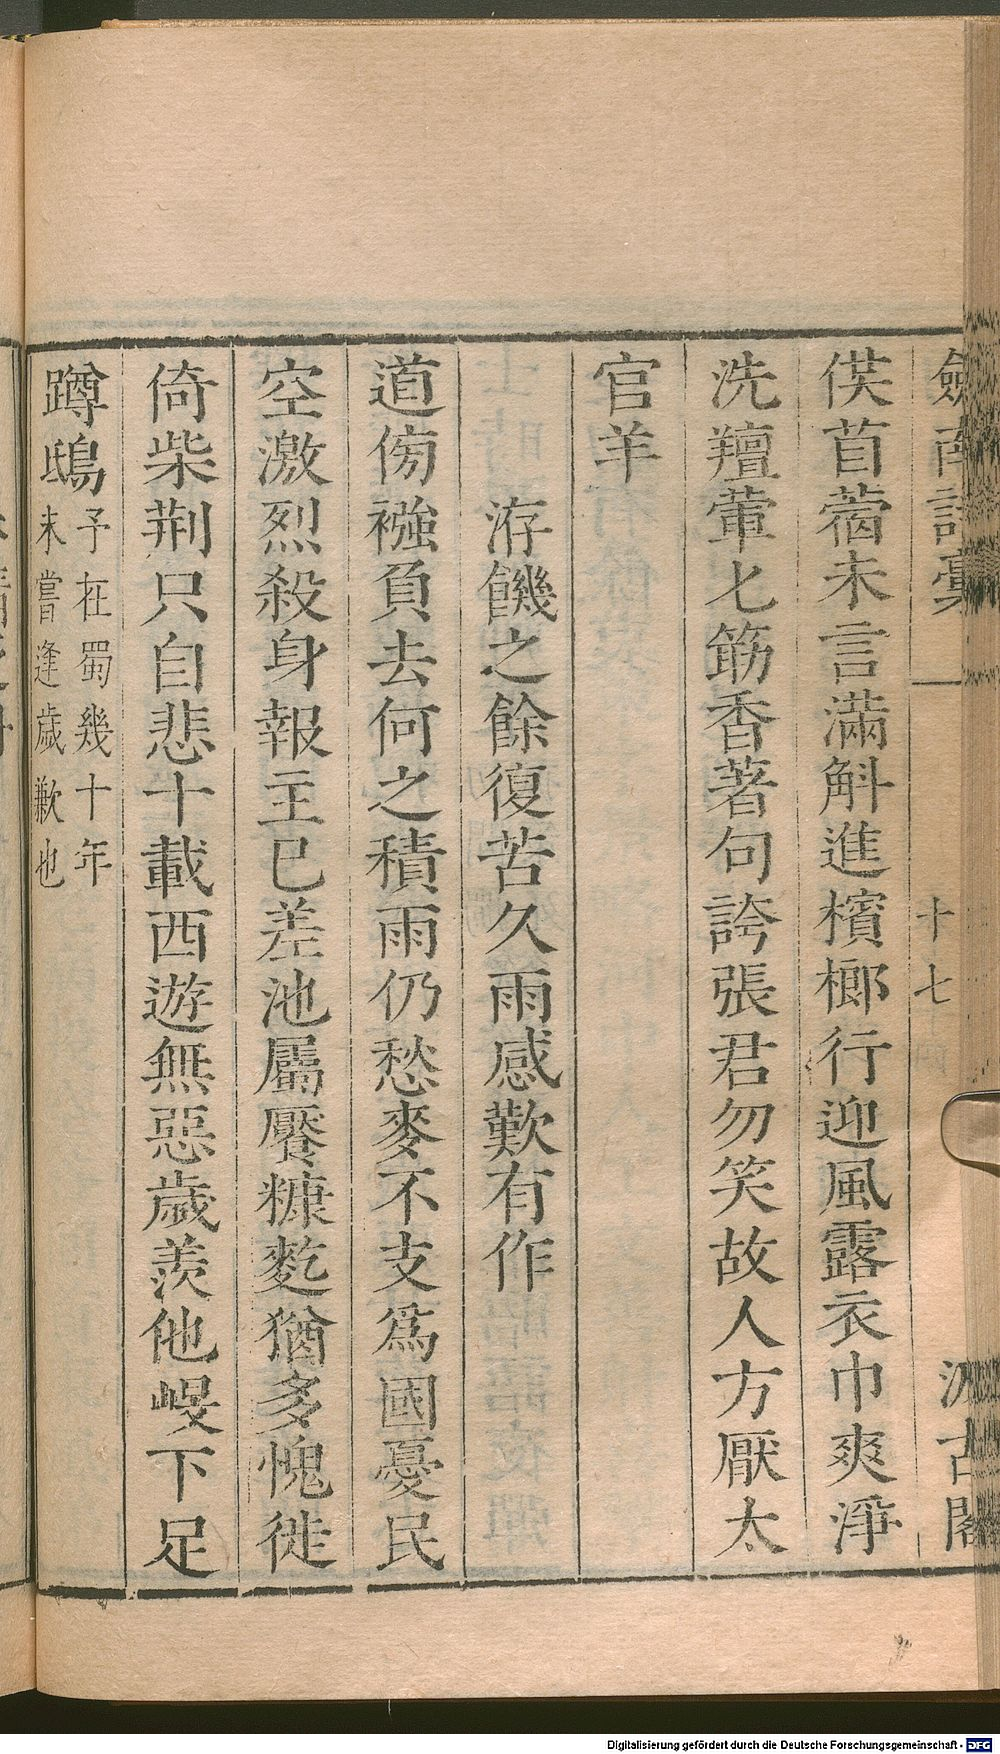 劍南詩稾 十七 汲古閣
㒒苜蓿未言滿斛進檳榔行迎風露衣巾爽淨
洗羶葷匕筯香著句誇張君勿笑故人方厭太
官羊
洊饑之餘復苦久雨感歎有作
道傍襁負去何之積雨仍愁麥不支爲國憂民
空激烈殺身報主已差池屬饜糠籺猶多愧徙
倚柴荆只自悲十載西遊無惡歲羨他㟭下足
蹲鴟予在蜀幾十年
未嘗逢歲歉也
Digitalisierung gefördert durch die Deutsche Forschungsgemeinschaft - DFG